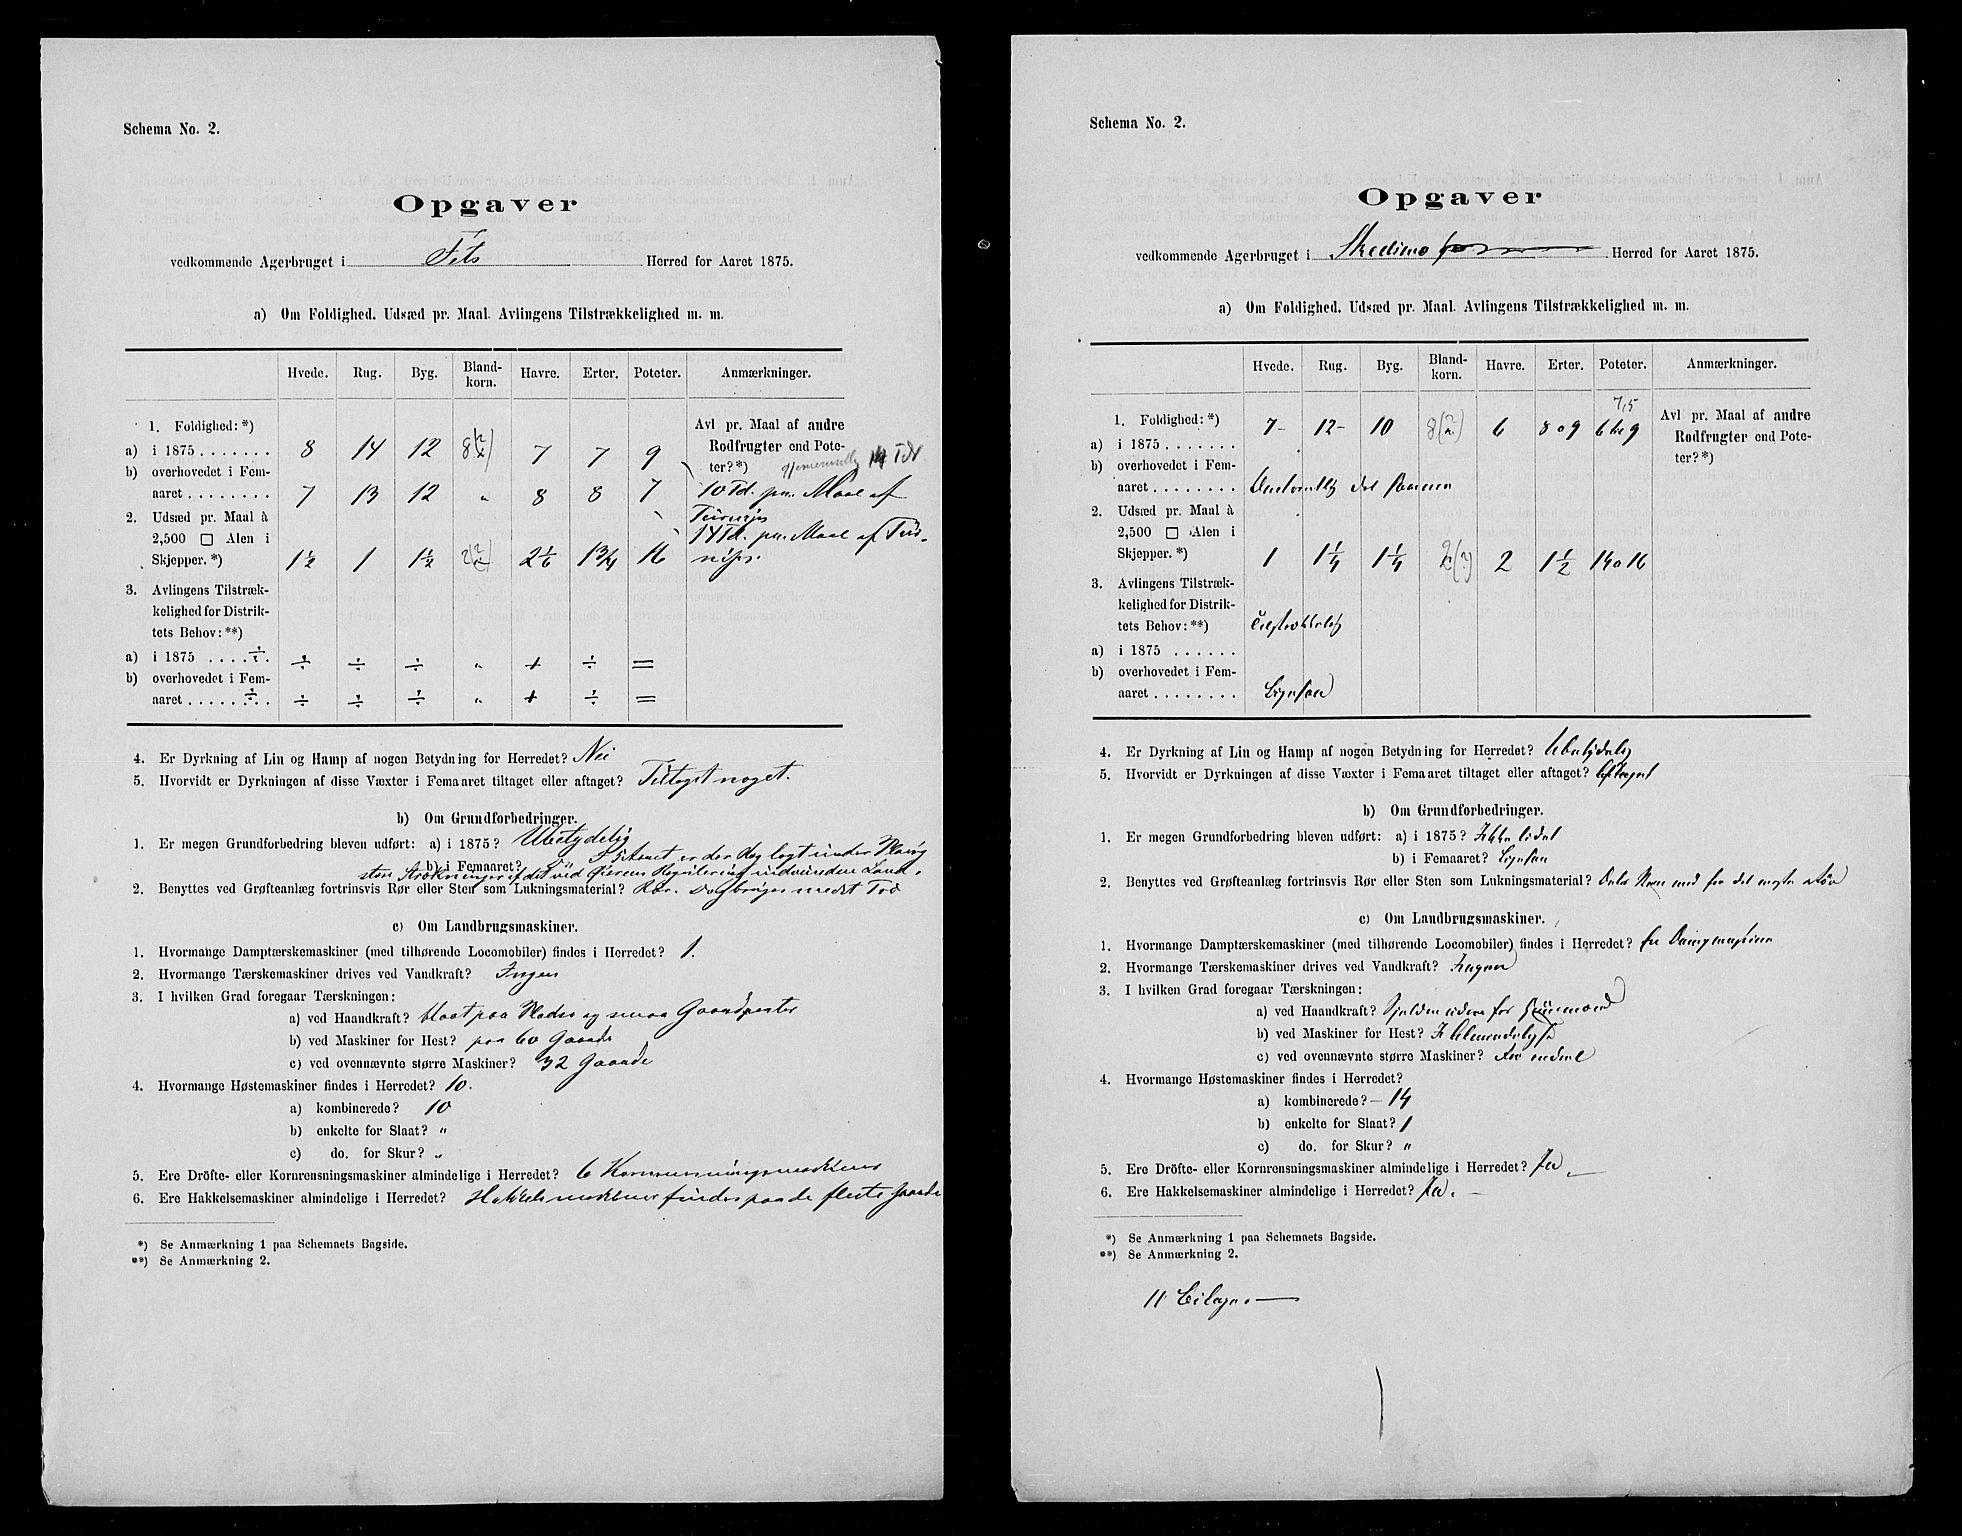 Schema No. 2.
Opgaver
vedkommende Agerbruget i Fets Herred for Aaret 1875.
a) Om Foldighed. Udsæd pr. Maal. Avlingens Tilstrækkelighed m. m.
Hvede. Rug. Byg. Bland-korn. Havre. Erter. Poteter. Anmærkninger.
1. Foldighed:*)
a) i 1875 . . . . . . . 8 14 12 8(?) 7 7 9
b) overhovedet i Fem-
aaret . . . . . . . . 7 13 12 „ 8 8 7
2. Udsæd pr. Maal à
2,500 □ Alen i
Skjepper.*) 1½ 1 1½ 2(?) 2⅙ 1¾ 16
Avl pr. Maal af andre
Rodfrugter end Pote-
ter?*) 14 Tdr
10 Td. pr. Maal af
Turnips
14 Td. pr. Maal af Tur-
nips.
3. Avlingens Tilstræk-
kelighed for Distrik-
tets Behov:**)
a) i 1875 . . . . ÷ ÷ ÷ ÷ „ + ÷ =
b) overhovedet i Fem-
aaret . . . . ÷ ÷ ÷ ÷ „ + ÷ =
4. Er Dyrkning af Lin og Hamp af nogen Betydning for Herredet? Nei
5. Hvorvidt er Dyrkningen af disse Væxter i Femaaret tiltaget eller aftaget? Tiltaget noget.
b) Om Grundforbedringer.
1. Er megen Grundforbedring bleven udført: a) i 1875? Ubetydelig
b) i Femaaret? I 5 Aaret er der dog lagt under Ploug
sten Strækninger af det ved Øierens Regulering indvundne Land.
2. Benyttes ved Grøfteanlæg fortrinsvis Rør eller Sten som Lukningsmaterial? Rør. Dog bruges mest Træ
c) Om Landbrugsmaskiner.
1. Hvormange Damptærskemaskiner (med tilhørende Locomobiler) findes i Herredet? 1.
2. Hvormange Tærskemaskiner drives ved Vandkraft? Ingen
3. I hvilken Grad foregaar Tærskningen:
a) ved Haandkraft? blot paa Pladse og smaa Gaardparter
b) ved Maskiner for Hest? paa 60 Gaarde
c) ved ovennævnte større Maskiner? 32 Gaarde
4. Hvormange Høstemaskiner findes i Herredet? 10.
a) kombinerede? 10
b) enkelte for Slaat? „
c) do. for Skur? „
5. Ere Dröfte- eller Kornrensningsmaskiner almindelige i Herredet? 6 Kornrensningsmaskiner
6. Ere Hakkelsemaskiner almindelige i Herredet? Hakkelsmaskiner findes paa de fleste Gaarde
*) Se Anmærkning 1 paa Schemaets Bagside.
**) Se Anmærkning 2.
Schema No. 2.
Opgaver
vedkommende Agerbruget i Skedsmo Herred for Aaret 1875.
a) Om Foldighed. Udsæd pr. Maal. Avlingens Tilstrækkelighed m. m.
Hvede. Rug. Byg. Bland-korn. Havre. Erter. Poteter. Anmærkninger.
7,5
1. Foldighed:*)
a) i 1875 . . . . . . . 7- 12- 10 8(?) 6 8 a 9 6 til 9
b) overhovedet i Fem-
aaret . . . . . . . . Omtrentlig det samme
2. Udsæd pr. Maal à
2,500 □ Alen i
Skjepper.*) 1 1¼ 1¼ 2(?) 2 1½ 14 a 16
Avl pr. Maal af andre
Rodfrugter end Pote-
ter?*)
3. Avlingens Tilstræk-
kelighed for Distrik-
tets Behov:**) Tilstrækkelig
a) i 1875 . . . . . .
b) overhovedet i Fem-
aaret . . . . . . . . Ligesaa
4. Er Dyrkning af Lin og Hamp af nogen Betydning for Herredet? Ubetydelig
5. Hvorvidt er Dyrkningen af disse Væxter i Femaaret tiltaget eller aftaget? Aftaget
b) Om Grundforbedringer.
1. Er megen Grundforbedring bleven udført: a) i 1875? Ikke lidet
b) i Femaaret? Ligesaa
2. Benyttes ved Grøfteanlæg fortrinsvis Rør eller Sten som Lukningsmaterial? men for det meste Rør
c) Om Landbrugsmaskiner.
1. Hvormange Damptærskemaskiner (med tilhørende Locomobiler) findes i Herredet? En Dampmaskine
2. Hvormange Tærskemaskiner drives ved Vandkraft? Ingen
3. I hvilken Grad foregaar Tærskningen:
a) ved Haandkraft? Sjelden uden for Huusmænd
b) ved Maskiner for Hest? Almindeligst
c) ved ovennævnte større Maskiner?
4. Hvormange Høstemaskiner findes i Herredet?
a) kombinerede? – 14
b) enkelte for Slaat? 1
c) do. for Skur? „
5. Ere Dröfte- eller Kornrensningsmaskiner almindelige i Herredet? Ja.
6. Ere Hakkelsemaskiner almindelige i Herredet? Ja. –
*) Se Anmærkning 1 paa Schemaets Bagside.
**) Se Anmærkning 2.
11 Bilage. —